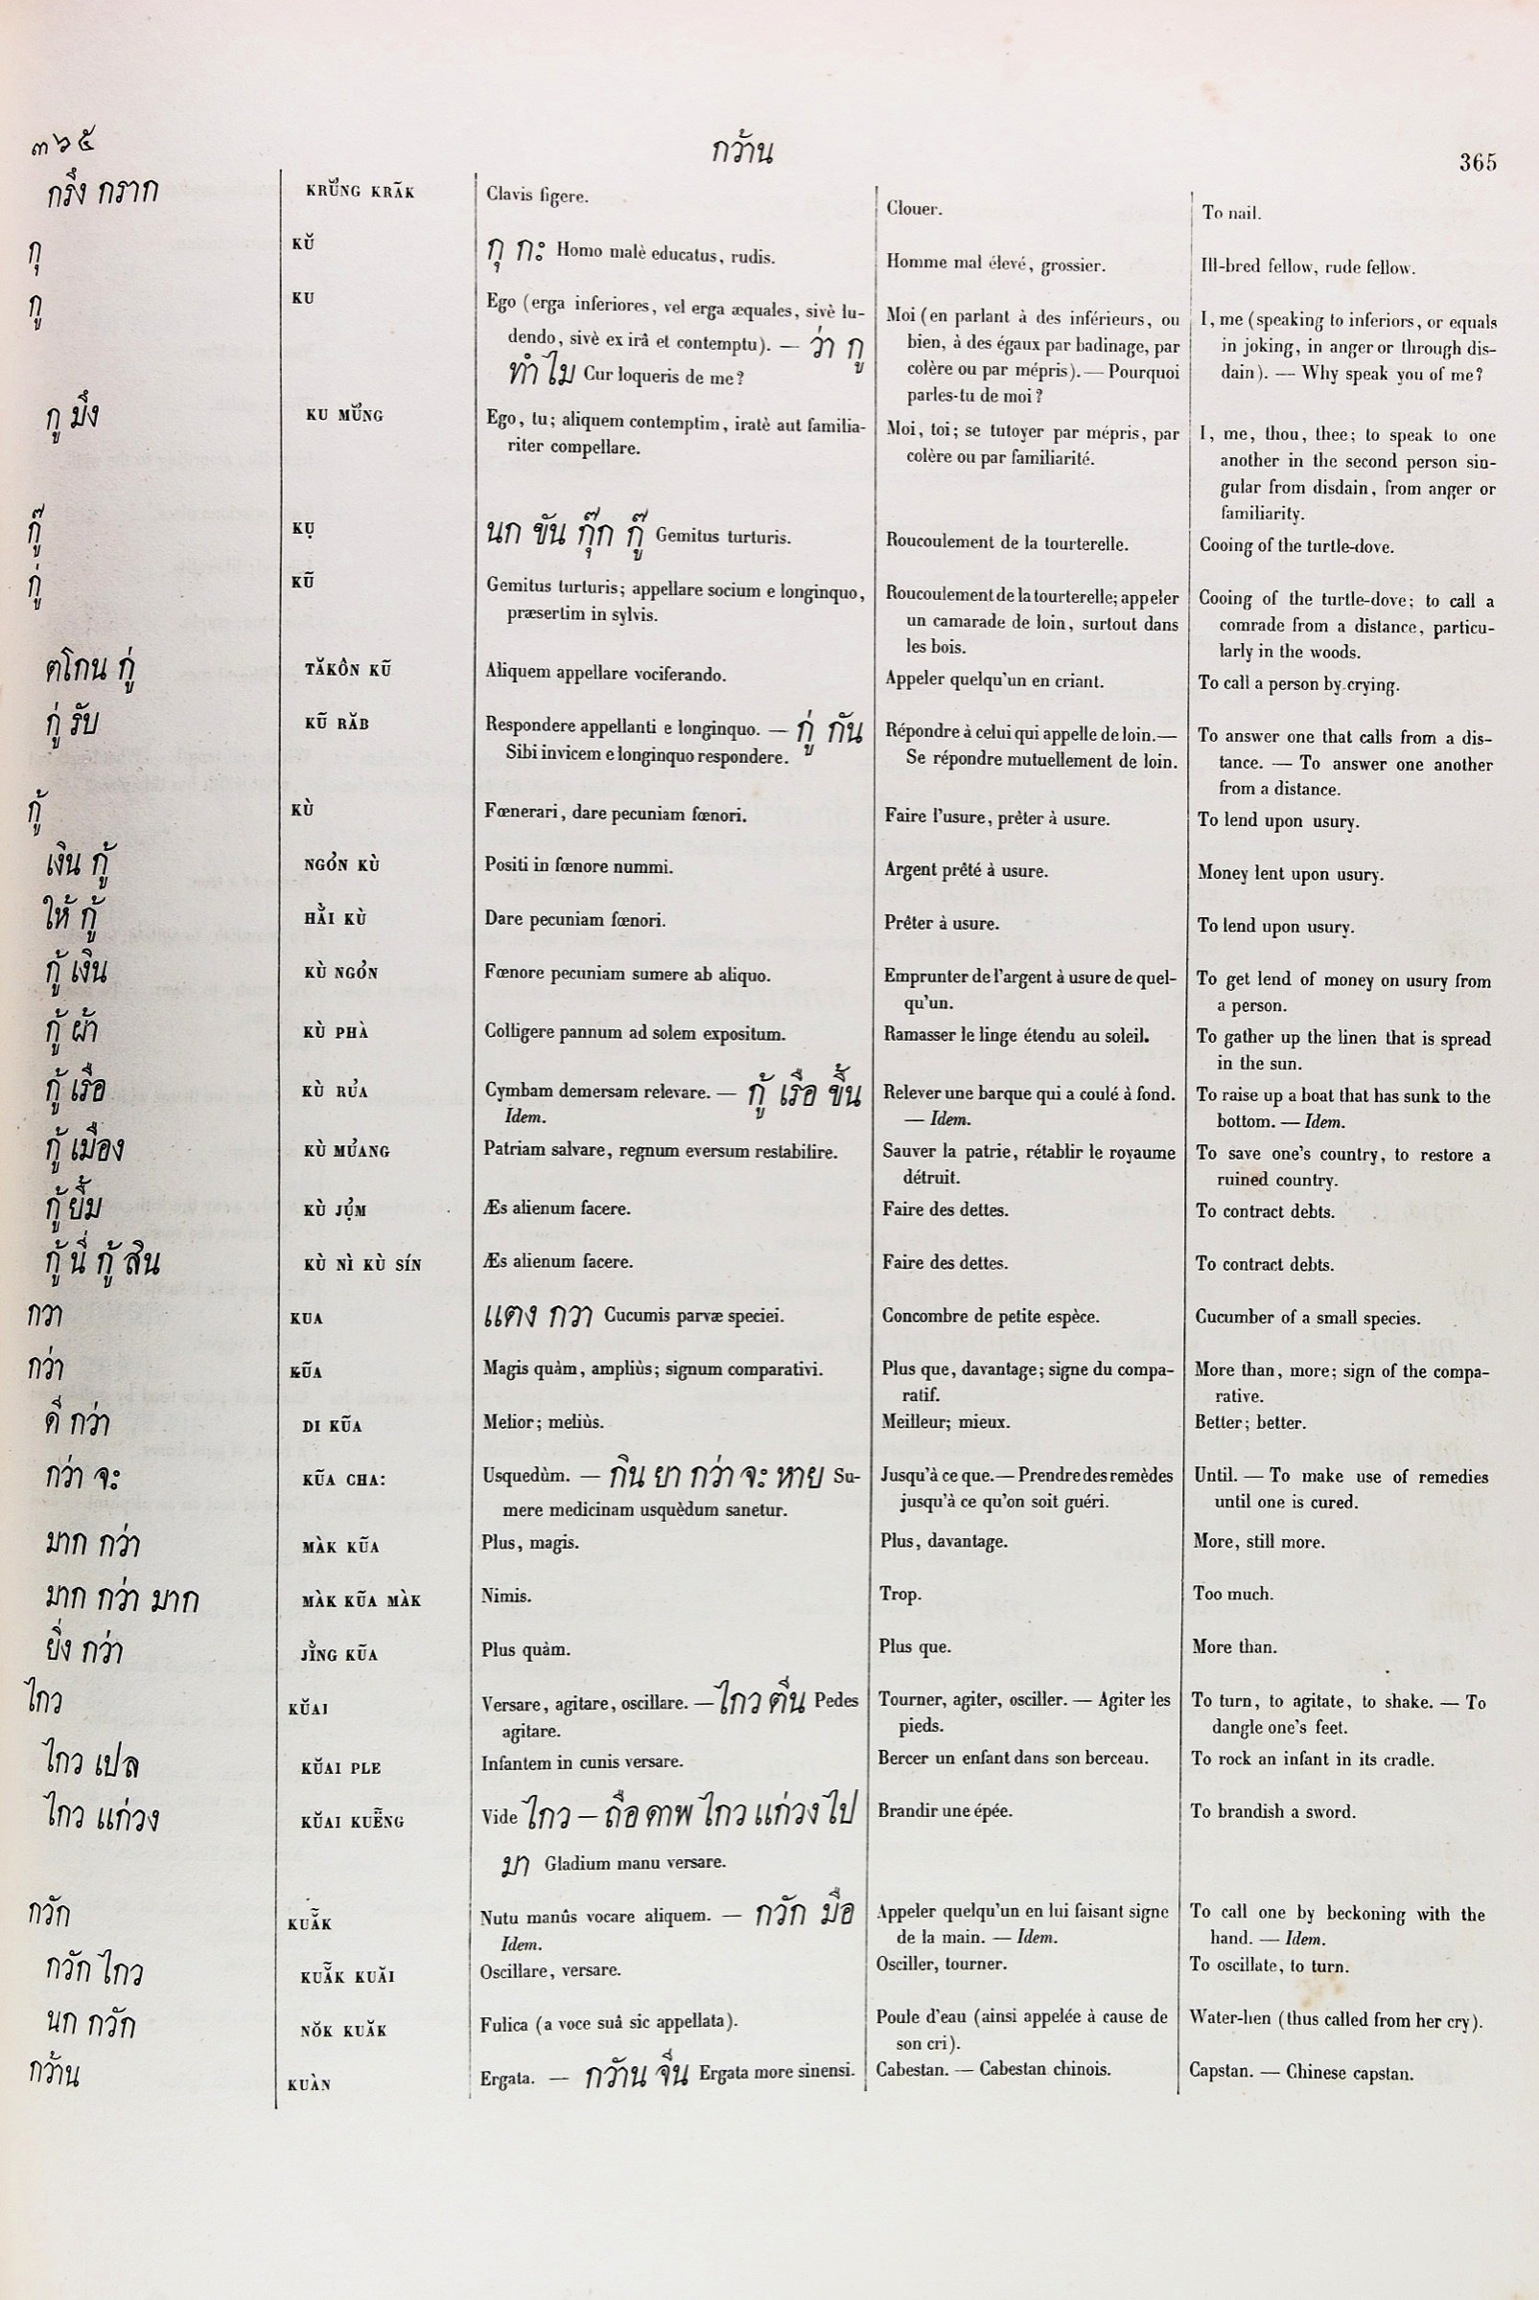 ๓๖๕ กว้าน 365
กรึง กราก KRŬ̉NG KRÃK Clavis figere. Clouer. To nail.
กุ KŬ กุ กะ Homo malè educatus, rudis. Homme mal élevé, grossier. Ill-bred fellow, rude fellow.
กู KU Ego (erga inferiores, vel erga æquales, sivè lu- Moi (en parlant à des inférieurs, ou I, me (speaking to inferiors, or equals
dendo, sivè ex irâ et contemptu). — ว่า กู bien, à des égaux par badinage, par in joking, in anger or through dis-
ทำไม Cur loqueris de me? colère ou par mépris). — Pourquoi dain). — Why speak you of me?
parles-tu de moi?
กู มึง KU MŬ̉NG Ego, tu; aliquem contemptim, iratè aut familia- Moi, toi; se tutoyer par mépris, par I, me, thou, thee; to speak to one
riter compellare. colère ou par familiarité. another in the second person sin-
gular from disdain, from anger or
familiarity.
กู๊ KỤ นก ขัน กุ๊ก กู๊ Gemitus turturis. Roucoulement de la tourterelle. Cooing of the turtle-dove.
กู่ KŨ Gemitus turturis; appellare socium e longinquo, Roucoulement de la tourterelle; appeler Cooing of the turtle-dove; to call a
præsertim in sylvis. un camarade de loin, surtout dans comrade from a distance, particu-
les bois. larly in the woods.
ตโกน กู่ TĂKÔN KŨ Aliquem appellare vociferando. Appeler quelqu'un en criant. To call a person by crying.
กู่ รับ KŨ RĂB Respondere appellanti e longinquo. — กู่ กัน Répondre à celui qui appelle de loin.— To answer one that calls from a dis-
Sibi invicem e longinquo respondere. Se répondre mutuellement de loin. tance. — To answer one another
from a distance.
กู้ KÙ Fœnerari, dare pecuniam fœnori. Faire l'usure, prêter à usure. To lend upon usury.
เงิน กู้ NGỎN KÙ Positi in fœnore nummi. Argent prêté à usure. Money lent upon usury.
ให้ กู้ HẰI KÙ Dare pecuniam fœnori. Prêter à usure. To lend upon usury.
กู้ เงิน KÙ NGỎN Fœnore pecuniam sumere ab aliquo. Emprunter de l'argent à usure de quel- To get lend of money on usury from
qu'un. a person.
กู้ ผ้า KÙ PHÀ Colligere pannum ad solem expositum. Ramasser le linge étendu au soleil. To gather up the linen that is spread
in the sun.
กู้ เรือ KÙ RỦA Cymbam demersam relevare. — กู้ เรือ ขึ้น Relever une barque qui a coulé à fond. To raise up a boat that has sunk to the
Idem. — Idem. bottom. — Idem.
กู้ เมือง KÙ MỦANG Patriam salvare, regnum eversum restabilire. Sauver la patrie, rétablir le royaume To save one's country, to restore a
détruit. ruined country.
กู้ ยืม KÙ JỤ̉M Æs alienum facere. Faire des dettes. To contract debts.
กู้ นี่ กู้ สิน KÙ NÌ KÙ SÍN Æs alienum facere. Faire des dettes. To contract debts.
กวา KUA แตง กวา Cucumis parvæ speciei. Concombre de petite espèce. Cucumber of a small species.
กว่า KŨA Magis quàm, ampliùs; signum comparativi. Plus que, davantage; signe du compa- More than, more; sign of the compa-
ratif. rative.
ดี กว่า DI KŨA Melior; meliùs. Meilleur; mieux. Better; better.
กว่า จะ KŨA CHA: Usquedùm. — กิน ยา กว่า จะ หาย Su- Jusqu'à ce que.— Prendre des remèdes Until. — To make use of remedies
mere medicinam usquèdum sanetur. jusqu'à ce qu'on soit guéri. until one is cured.
มาก กว่า MÀK KŨA Plus, magis. Plus, davantage. More, still more.
มาก กว่า มาก MÀK KŨA MÀK Nimis. Trop. Too much.
ยิ่ง กว่า JI᷈̀NG KŨA Plus quàm. Plus que. More than.
ไกว KŬAI Versare, agitare, oscillare. — ไกว ตีน Pedes Tourner, agiter, osciller. — Agiter les To turn, to agitate, to shake. — To
agitare. pieds. dangle one's feet.
ไกว เปล KŬAI PLE Infantem in cunis versare. Bercer un enfant dans son berceau. To rock an infant in its cradle.
ไกว แก่วง KŬAI KUẼ̈NG Vide ไกว — ถือ ดาพ ไกว แก่วง ไป Brandir une épée. To brandish a sword.
มา Gladium manu versare.
กวัก KUẴK Nutu manûs vocare aliquem. — กวัก มือ Appeler quelqu'un en lui faisant signe To call one by beckoning with the
Idem. de la main. — Idem. hand. — Idem.
กวัก ไกว KUẴK KUĂI Oscillare, versare. Osciller, tourner. To oscillate, to turn.
นก กวัก NŎK KUĂK Fulica (a voce suâ sic appellata). Poule d'eau (ainsi appelée à cause de Water-hen (thus called from her cry).
son cri).
กว้าน KUÀN Ergata. — กว้าน จีน Ergata more sinensi. Cabestan. — Cabestan chinois. Capstan. — Chinese capstan.